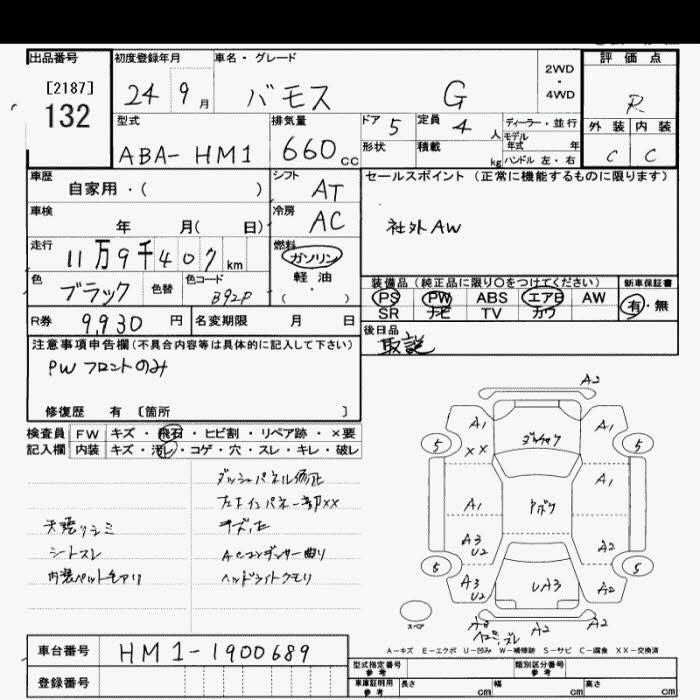 出品番号
[2187]
132
初度登録年月
24 9 月
車名・グレード
バモス G
2WD
・
4WD
評価点
R
外装 内装
C C
型式
ABA- HM1
排気量
660 cc
ドア 5
定員 4 人
ディーラー・並行
モデル
年式 年
形状
積載 kg
ハンドル 左・右
車歴
自家用・( )
シフト
AT
セールスポイント (正常に機能するものに限ります)
社外AW
車検
年 月( 日)
冷房
AC
走行
11万9千407 km
燃料
ガソリン
軽油
( ・ )
色
ブラック
色替
色コード
B92P
装備品 (純正品に限り〇をつけてください)
PS PW ABS エアB AW
SR ナビ TV カワ
新車保証書
有・無
R券 9,930 円
名変期限 月 日
後日品
取説
注意事項申告欄(不具合内容等は具体的に記入して下さい)
PW フロントのみ
修復歴 有 [箇所 ]
検査員
記入欄
FW キズ・飛石・ヒビ割・リペア跡・×要
内装 キズ・汚れ・コゲ・穴・スレ・キレ・破レ
ダッシュパネル修正
シトスレ
ACコンデンサー曲り
ヘッドライトクモリ
A2
A1
XX
5
A1
5
A1
A1
A3
U2
A2
5
5
A3
U2
UA3
A2
スペア
A2
A2
A-キズ E-エクボ U-凹み W-補修跡 S-サビ C-腐食 XX-交換済
車台番号
HM1-1900689
登録番号
型式指定番号
参考
類別区分番号
参考
車庫証明用
参考
長さ cm
幅 cm
高さ cm